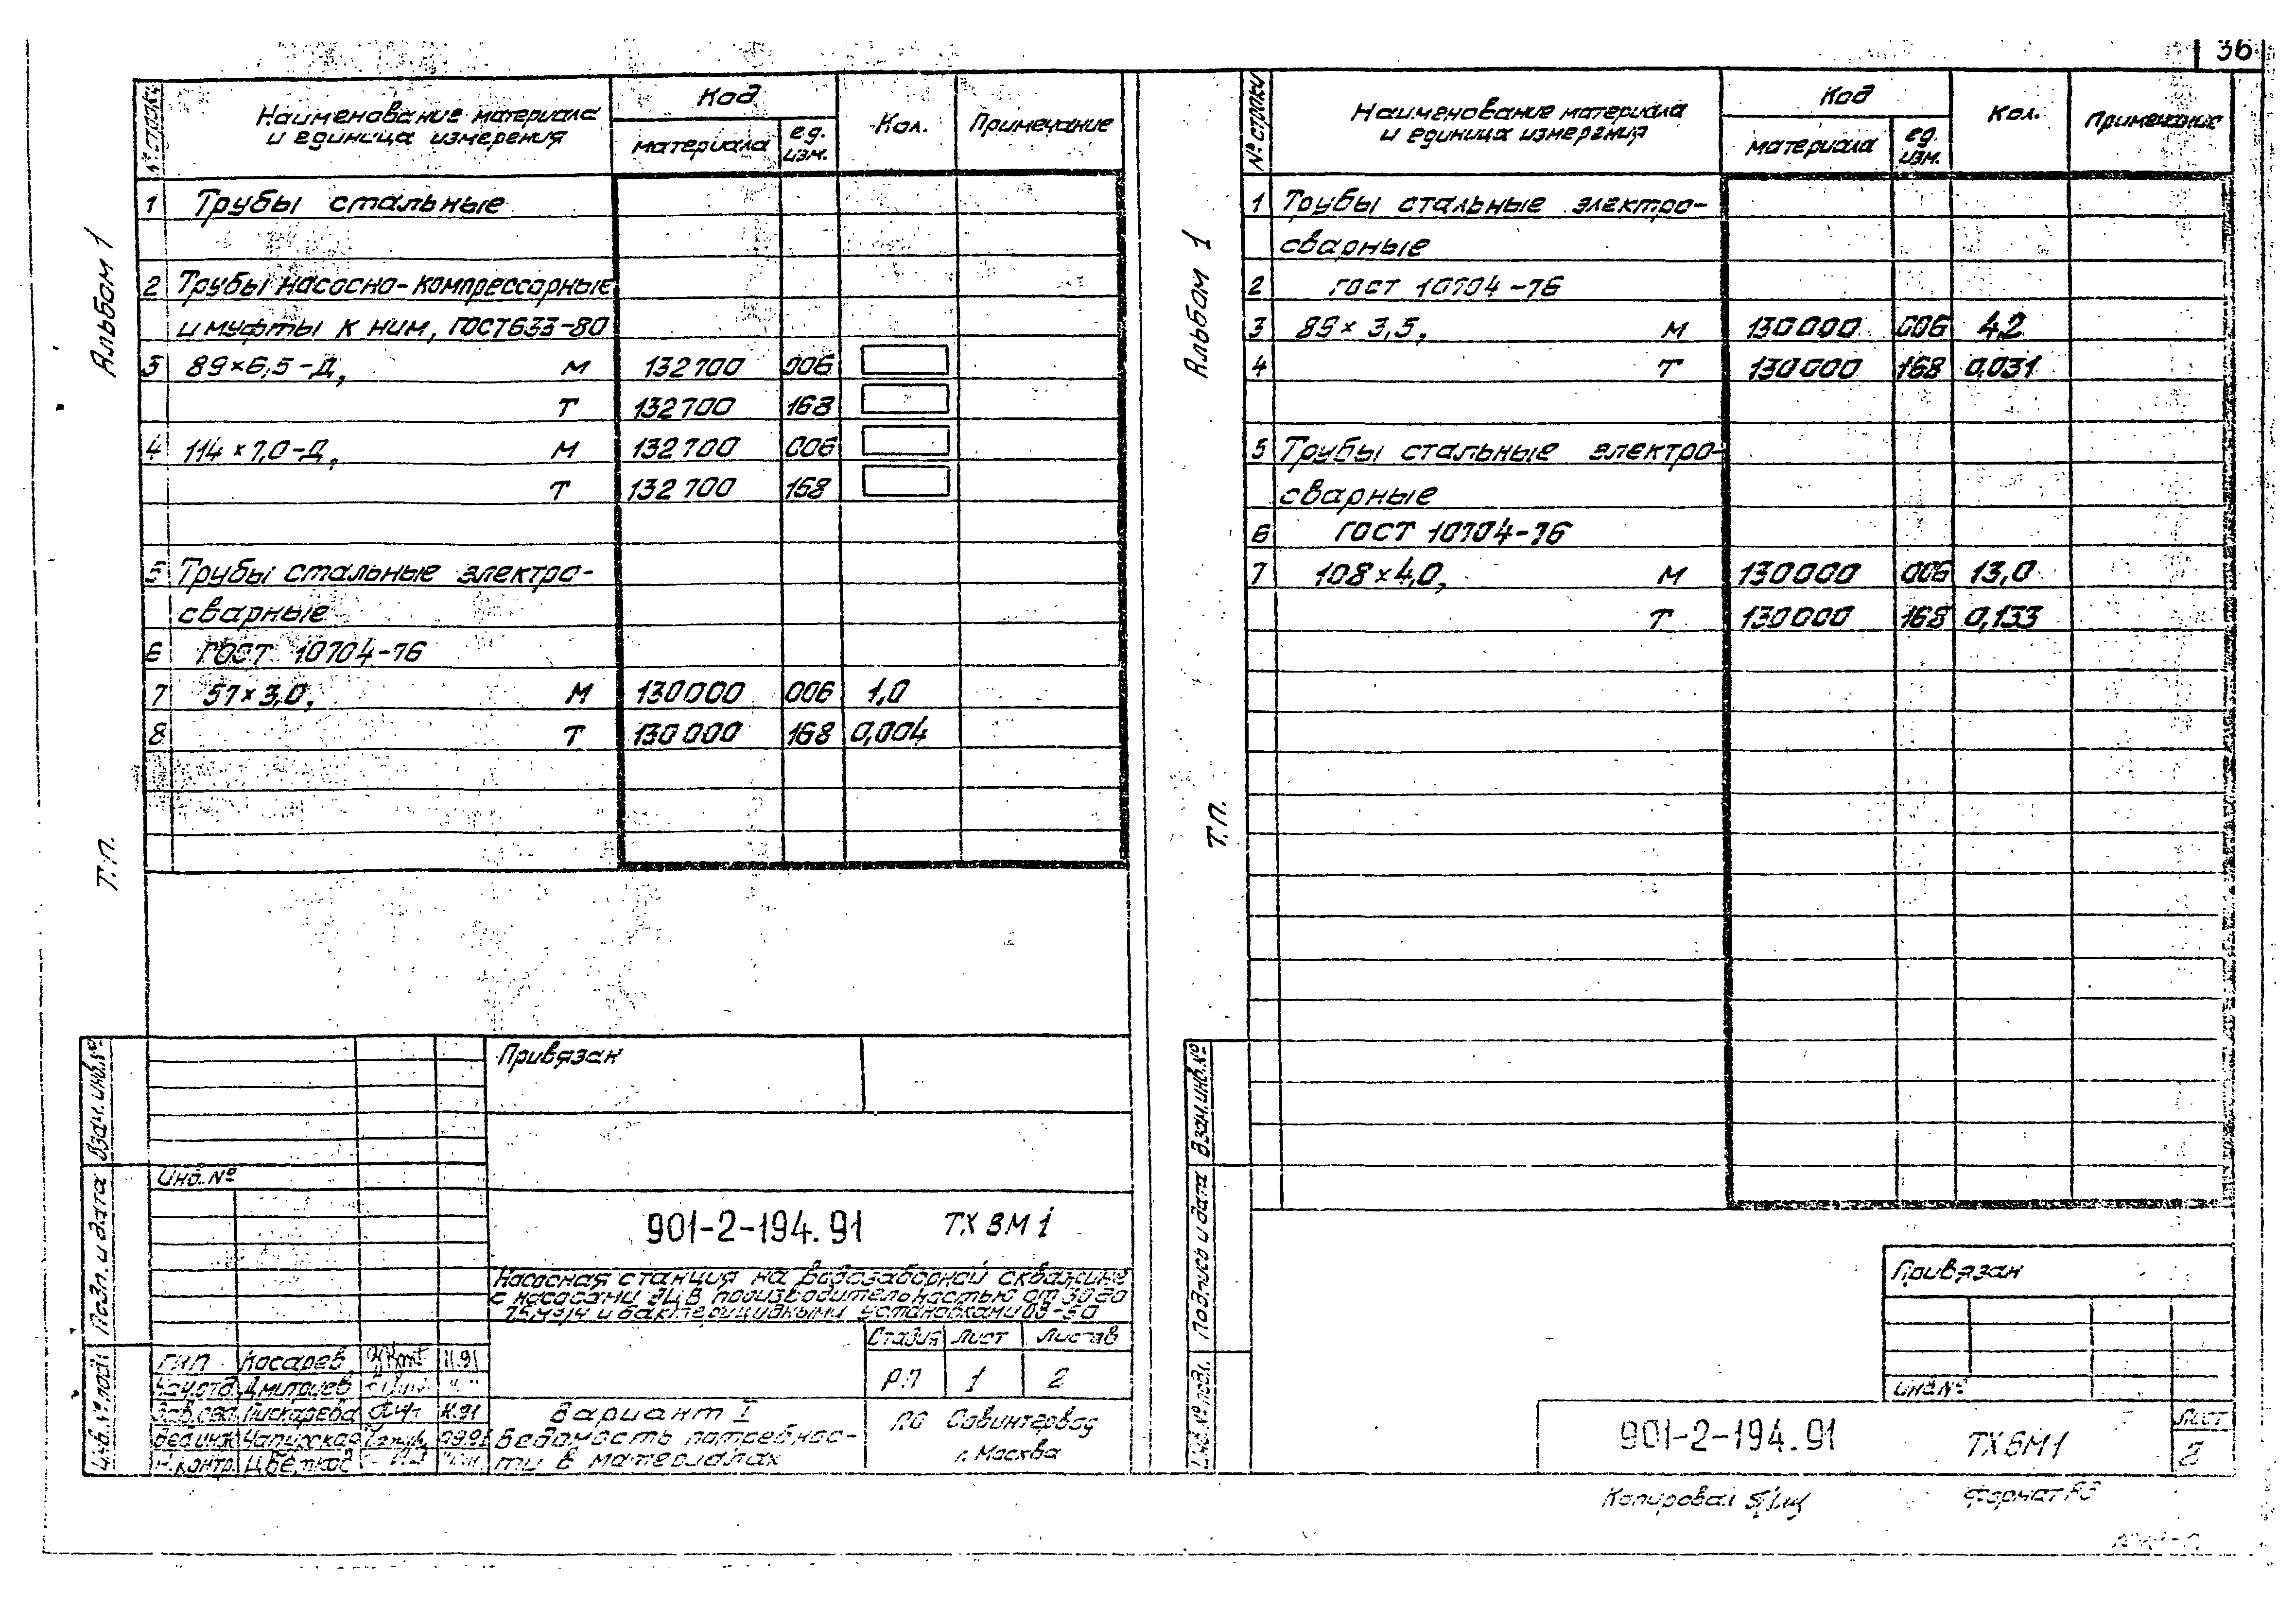 36
Альбом 1
Т.П.
№ строки
Наименование материала
и единица измерения
Код
материала
ед.
изм.
Кол.
Примечание
1 Трубы стальные
2 Трубы насосно-компрессорные
и муфты к ним, ГОСТ 633-80
3 89×6,5-Д, м 132700 006
т 132700 168
4 114×7,0-Д, м 132700 006
т 132700 168
5 Трубы стальные электро-
сварные
6 ГОСТ 10704-76
7 57×3,0, м 130000 006 1,0
8 т 130000 168 0,004
Привязан
Инв. №
901-2-194.91 ТХ ВМ 1
Насосная станция на водозаборной скважине
с насосами ЭЦВ производительностью от 30 до
и бактерицидными установками
Стадия Лист Листов
РП 1 2
ГИП Косарев 11.91
Нач.отд Дмитриев
Пискарева 11.91
Вед.инж
Н.контр.
Вариант I
Ведомость потребнос-
ти в материалах
ПО Совинтервод
г. Москва
Взам.инв.№
Подп. и дата
Инв.№ подл.
Альбом 1
Т.П.
№ строки
Наименование материала
и единица измерения
Код
материала
ед.
изм.
Кол.
Примечание
1 Трубы стальные электро-
сварные
2 ГОСТ 10704-76
3 89×3,5, м 130000 006 4,2
4 т 130000 168 0,031
5 Трубы стальные электро-
сварные
6 ГОСТ 10704-76
7 108×4,0, м 130000 006 13,0
т 130000 168 0,133
Взам.инв.№
Подпись и дата
Инв.№ подл.
Привязан
Инв.№
901-2-194.91 ТХ ВМ 1
Лист
2
Копировал
Формат А3